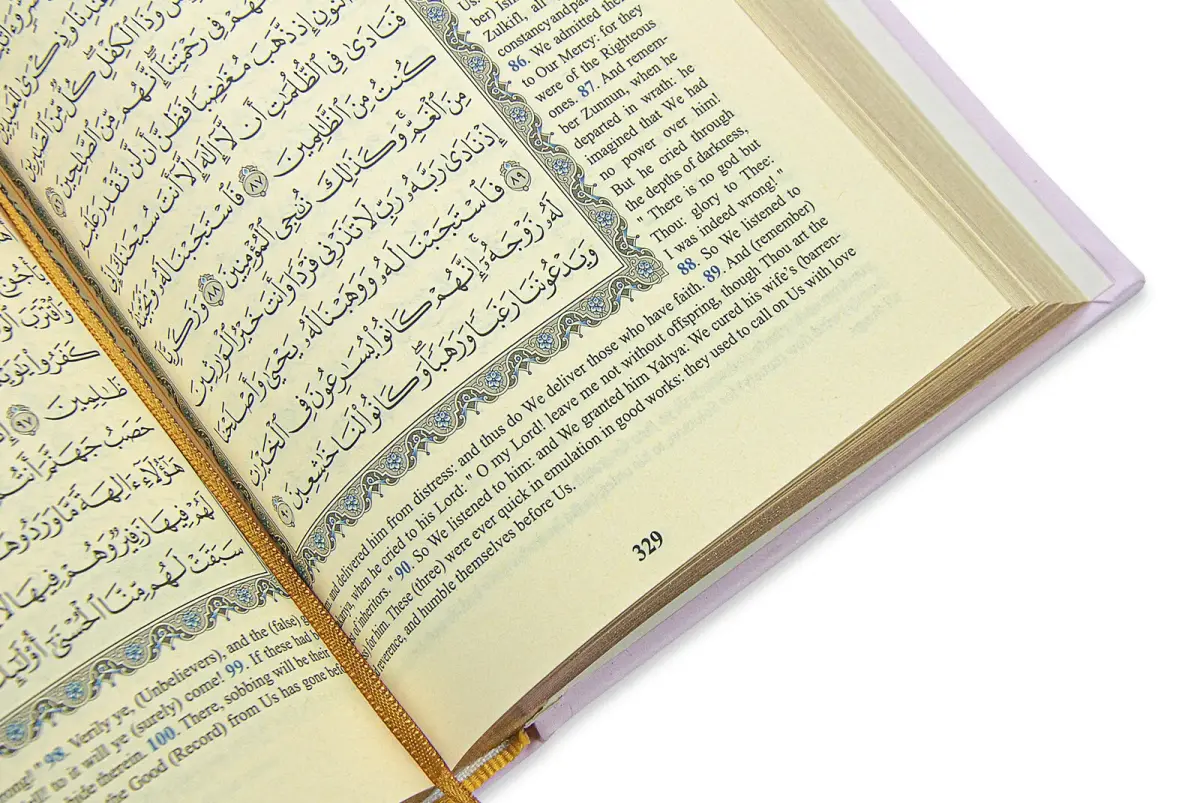 وَذَا ٱلْكِفْلِ كُلٌّ مِّنَ ٱلصَّٰبِرِينَ
فِى رَحْمَتِنَآ إِنَّهُم مِّنَ ٱلصَّٰلِحِينَ ٨٦
إِذ ذَّهَبَ مُغَٰضِبًا فَظَنَّ أَن لَّن نَّقْدِرَ عَلَيْهِ
فَنَادَىٰ فِى ٱلظُّلُمَٰتِ أَن لَّآ إِلَٰهَ إِلَّآ أَنتَ سُبْحَٰنَكَ إِنِّى
كُنتُ مِنَ ٱلظَّٰلِمِينَ ٨٧ فَٱسْتَجَبْنَا لَهُۥ وَنَجَّيْنَٰهُ
مِنَ ٱلْغَمِّ وَكَذَٰلِكَ نُۨجِى ٱلْمُؤْمِنِينَ ٨٨ وَزَكَرِيَّآ
إِذْ نَادَىٰ رَبَّهُۥ رَبِّ لَا تَذَرْنِى فَرْدًا وَأَنتَ خَيْرُ ٱلْوَٰرِثِينَ
٨٩ فَٱسْتَجَبْنَا لَهُۥ وَوَهَبْنَا لَهُۥ يَحْيَىٰ وَأَصْلَحْنَا
لَهُۥ زَوْجَهُۥٓ إِنَّهُمْ كَانُوا۟ يُسَٰرِعُونَ فِى ٱلْخَيْرَٰتِ
وَيَدْعُونَنَا رَغَبًا وَرَهَبًا وَكَانُوا۟ لَنَا خَٰشِعِينَ ٩٠
Zulkifl, all
constancy and
86. We admitted them
to Our Mercy: for they
were of the Righteous
ones. 87. And remem-
ber Zunnun, when he
departed in wrath: he
imagined that We had
no power over him!
But he cried through
the depths of darkness,
" There is no god but
Thou: glory to Thee:
I was indeed wrong!"
88. So We listened to
and delivered him from distress: and thus do We deliver those who have faith. 89. And (remember)
when he cried to his Lord: " O my Lord! leave me not without offspring, though Thou art the
of inheritors. " 90. So We listened to him: and We granted him Yahya: We cured his wife's (barren-
for him. These (three) were ever quick in emulation in good works; they used to call on Us with love
reverence, and humble themselves before Us.
329
ظَٰلِمِينَ ٩٧
حَصَبُ جَهَنَّمَ أَنتُمْ
هَٰٓؤُلَآءِ ءَالِهَةً مَّا وَرَدُوهَا
لَهُمْ فِيهَا زَفِيرٌ وَهُمْ فِيهَا لَا
سَبَقَتْ لَهُم مِّنَّا ٱلْحُسْنَىٰٓ أُو۟لَٰٓئِكَ
98. Verily ye, (Unbelievers), and the (false)
to it will ye (surely) come! 99. If these had
therein. 100. There, sobbing will be their
the Good (Record) from Us has gone